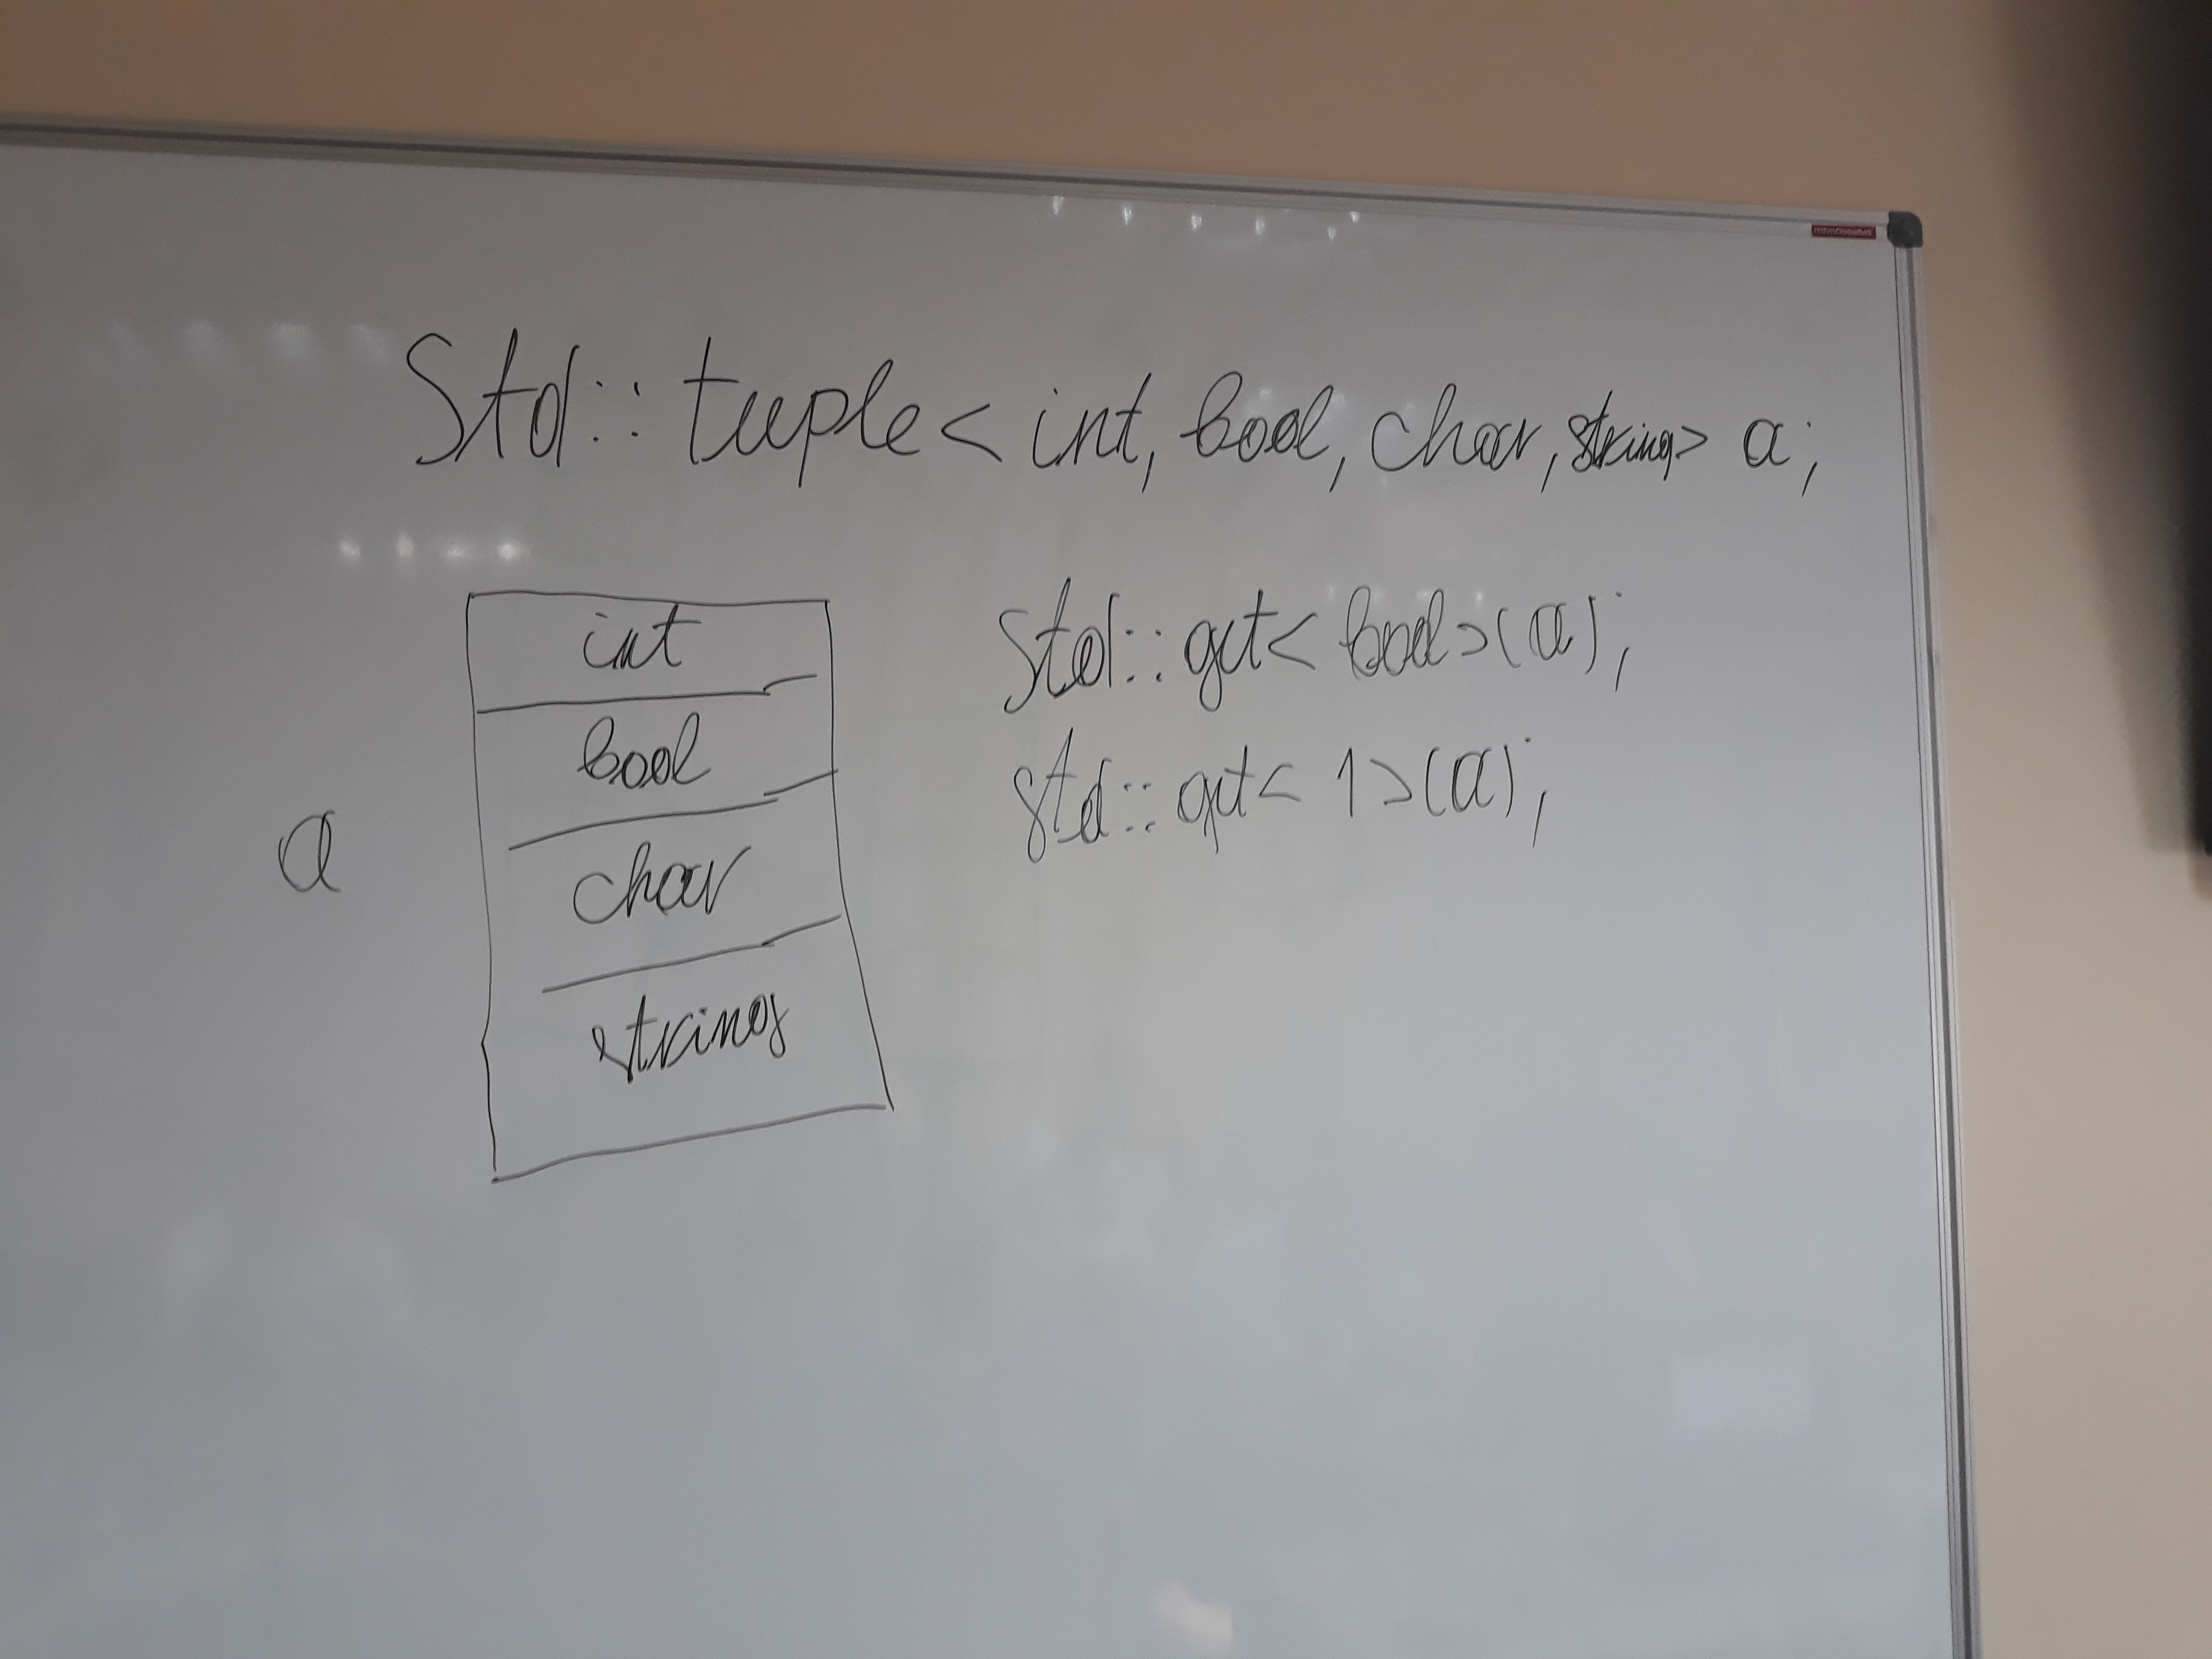 Std::tuple< int, bool, char, string> a;
int
bool
char
string
a
std::get< bool>(a);
std::get< 1>(a);